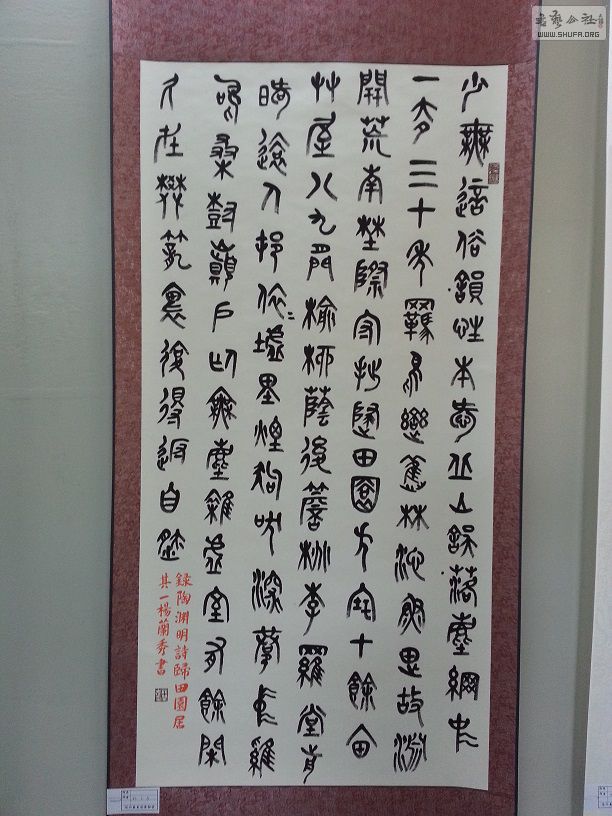 少無適俗韻性本愛丘山誤落塵網中
一去三十年羈鳥戀舊林池魚思故淵
開荒南埜際守拙歸田園方宅十餘畝
艸屋八九間榆柳蔭後簷桃李羅堂前
曖遠人邨依〻墟里煙狗吠深巷中雞
鳴桑樹巔戶庭無塵雜虛室有餘閑
久在樊籠裏復得返自然
錄陶淵明詩歸田園居
其一楊蘭秀書
書藝公社
WWW.SHUFA.ORG